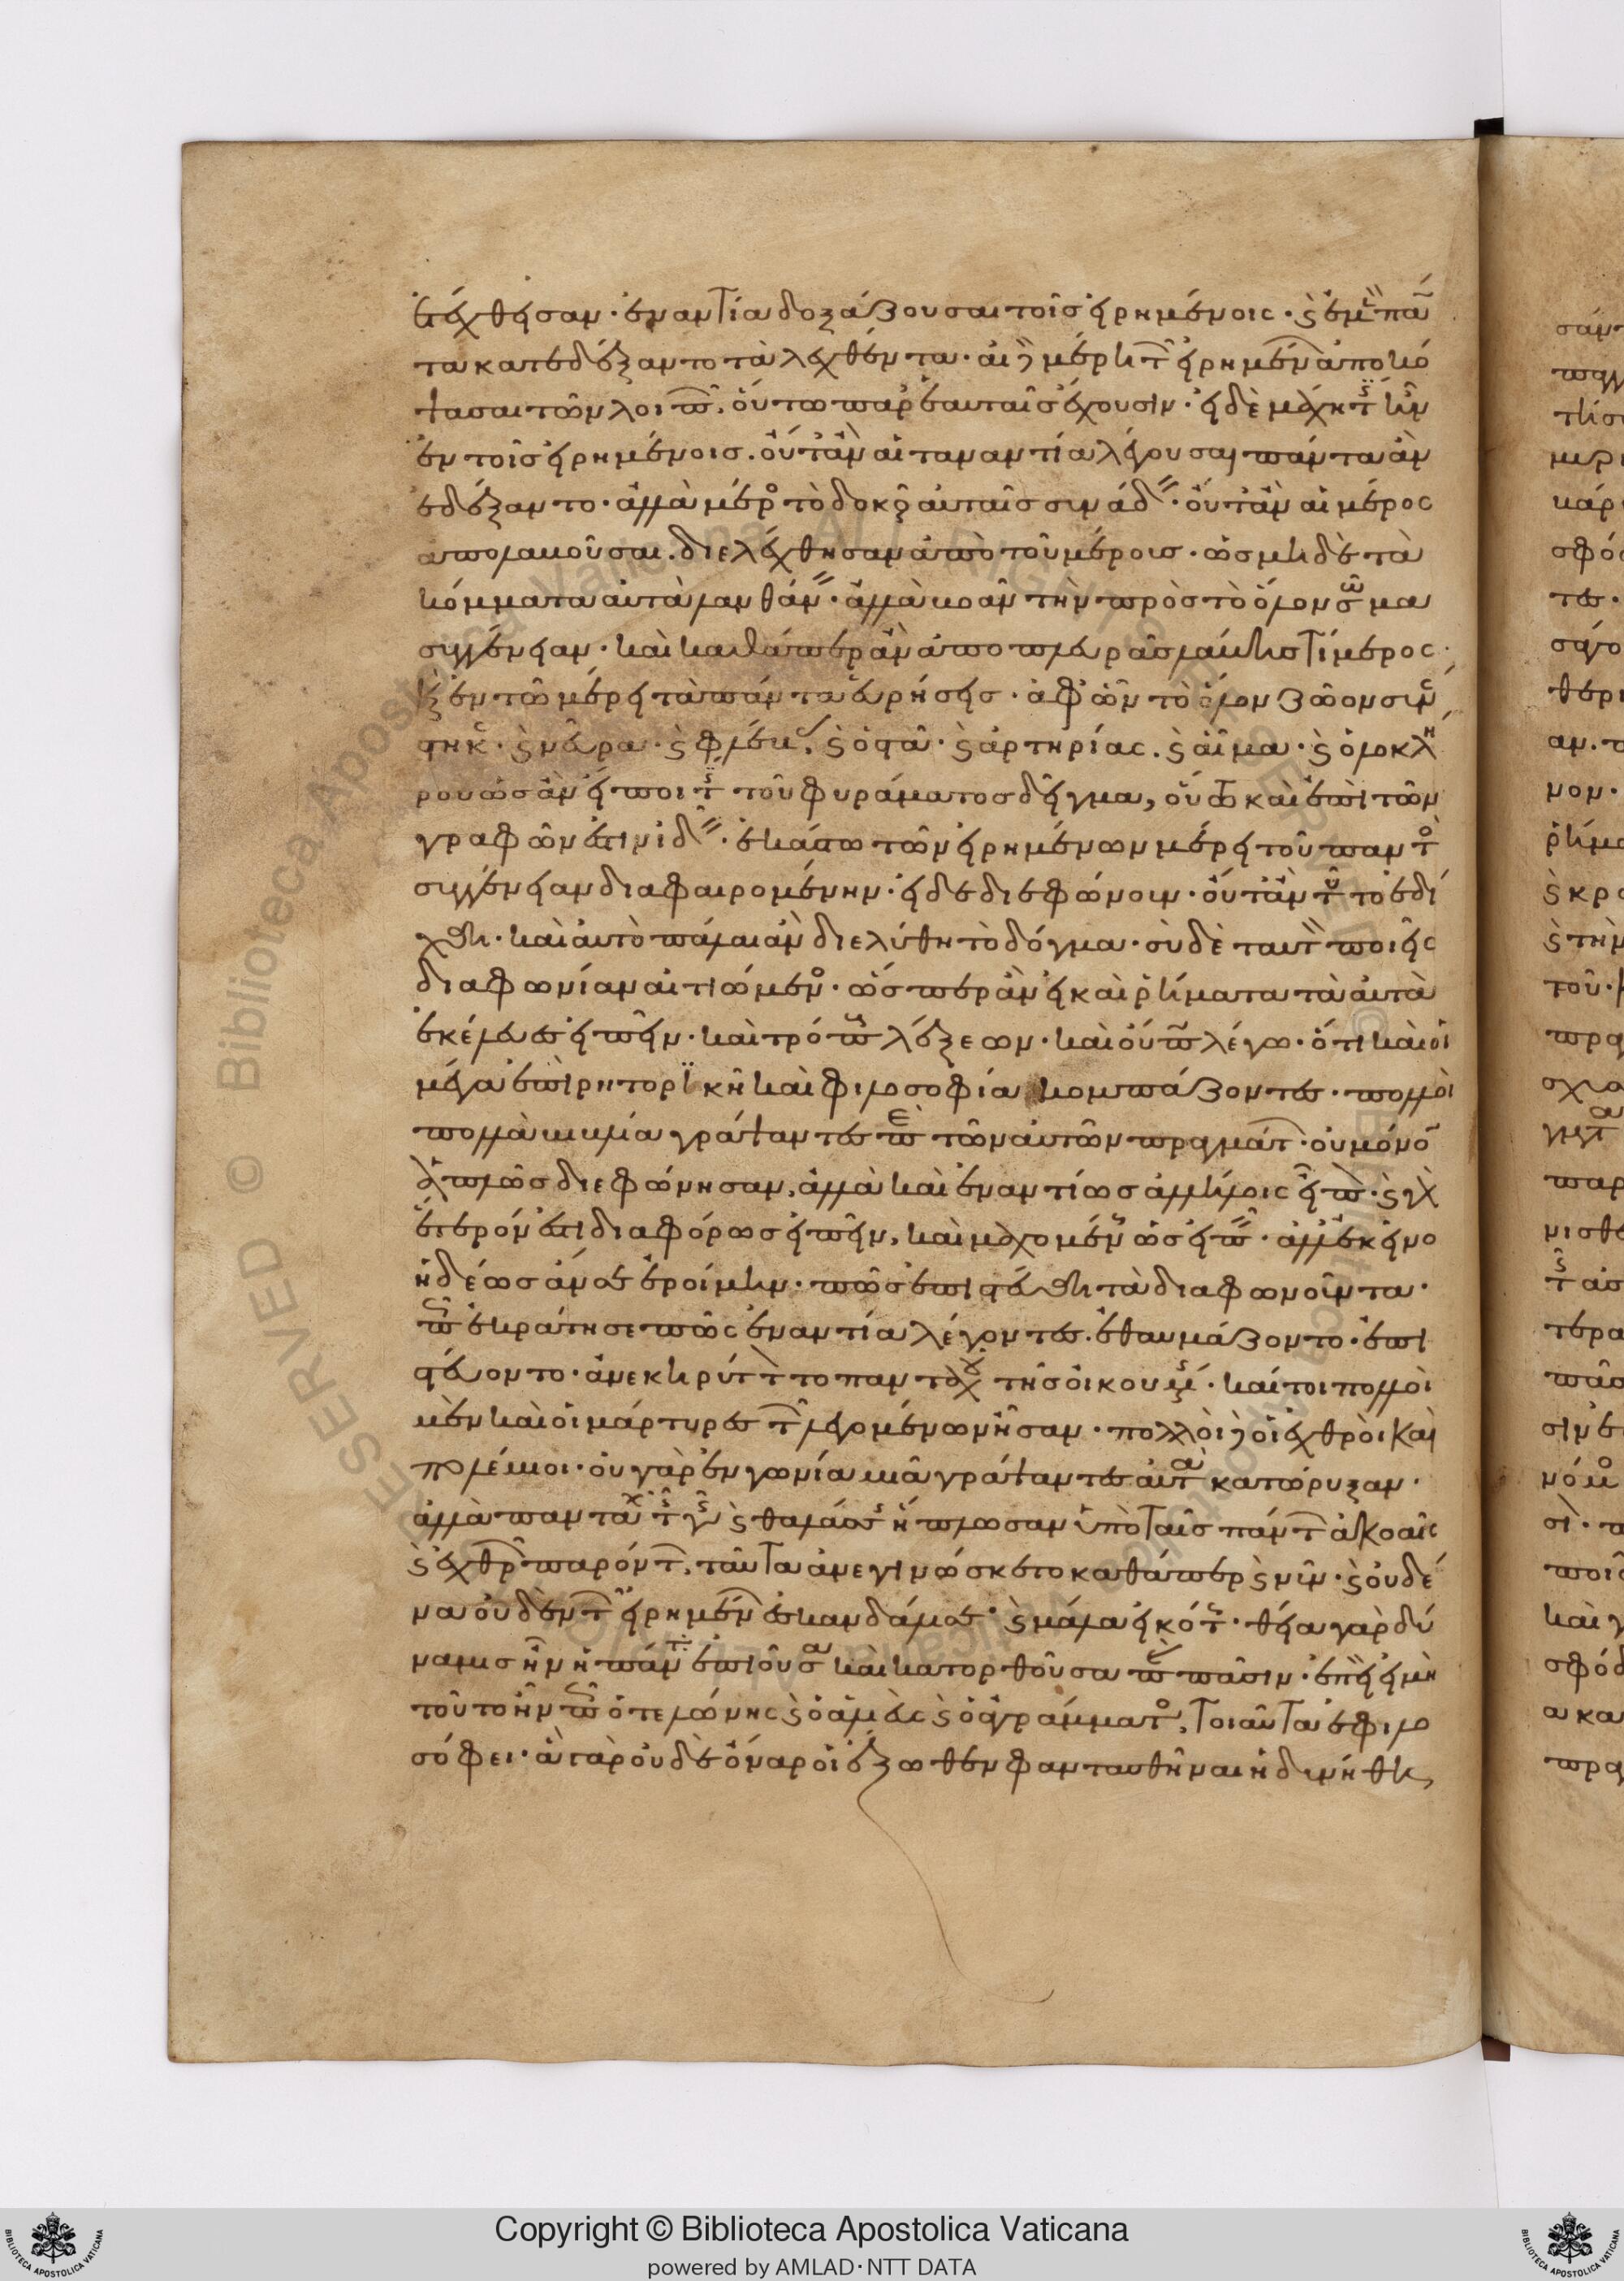 ἐτέχθησαν· ἐναντία δοξάζουσαι τοῖς εἰρημένοις· καὶ αἱ μὲν πάν
τα κατεδέξαντο τὰ λεχθέντα· αἱ δὲ μέρη τῶν εἰρημένων ἀποκό
ψασαι τῶν λοιπῶν, οὕτω παρ' ἑαυταῖς ἔχουσιν· εἰ δὲ μάχη τις ἦν
ἐν τοῖς εἰρημένοις. οὔτ' ἂν αἱ τἀναντία λέγουσαι πάντα ἂν
ἐδέξαντο· ἀλλὰ μέρος τὸ δοκοῦν αὐταῖς συνάδειν· οὔτ' ἂν αἱ μέρος
ἀπολαβοῦσαι. διελέχθησαν ἀπὸ τοῦ μέρους· ὡς μηδὲ τὰ
κόμματα αὐτὰ λανθάνειν· ἀλλὰ βοᾶν τὴν πρὸς τὸ ὅλον σῶμα
συγγένειαν· καὶ καθάπερ ἂν ἀπὸ πλευρᾶς λάβης τι μέρος·
καὶ ἐν τῶ μέρει τὰ πάντα εὑρήσεις· ἀφ' ὧν τὸ ὅλον ζῶον συνέ
στηκε· καὶ νεῦρα· καὶ φλέβας, καὶ ὀστᾶ· καὶ ἀρτηρίας. καὶ αἷμα· καὶ ὁλοκλή
ρου ὡς ἂν εἴποι τις τοῦ φυράματος δεῖγμα, οὕτω καὶ ἐπὶ τῶν
γραφῶν ἔστιν ἰδεῖν· ἑκάστω τῶν εἰρημένων μέρει τοῦ παντὸς
συγγένειαν διαφαινομένην· εἰ δὲ διεφώνουν· οὔτ' ἂν τοῦτο ἐδεί
χθη· καὶ αὐτὸ πάλαι ἂν διελύθη τὸ δόγμα· σὺ δὲ ταύτην ποιεῖς
διαφωνίαν αἰτιώμενος· ὥσπερ ἂν εἰ καὶ ῥήματα τὰ αὐτὰ
ἐκέλευες εἰπεῖν· καὶ τρόπους λέξεων· καὶ οὔπω λέγω· ὅτι καὶ οἱ
μέγα ἐπὶ ρητορικῆ καὶ φιλοσοφία κομπάζοντες· πολλοὶ
πολλὰ βιβλία γράψαντες περὶ τῶν αὐτῶν πραγμάτων· οὐ μόνον
ἁπλῶς διεφώνησαν, ἀλλὰ καὶ ἐναντίως ἀλλήλοις εἶπον· καὶ γὰρ
ἕτερόν ἐστι διαφόρως εἰπεῖν, καὶ μαχομένους εἰπεῖν· ἀλλ' ἐκεῖνο
ἡδέως ἂν ἐροίμην· πῶς ἐπιστεύθη τὰ διαφωνοῦντα·
πῶς ἐκράτησε πῶς ἐναντία λέγοντες. ἐθαυμάζοντο· ἐπι
στεύοντο· ἀνεκηρύττοντο πανταχοῦ τῆς οἰκουμένης· καίτοι πολλοὶ
μὲν καὶ οἱ μάρτυρες τῶν λεγομένων ἦσαν· πολλοὶ δὲ οἱ ἐχθροὶ καὶ
πολέμιοι· οὐ γὰρ ἐν γωνία μιᾶ γράψαντες αὐτὰ κατώρυξαν·
ἀλλὰ πανταχοῦ τῆς γῆς καὶ θαλάσσης ἥπλωσαν ὑπὸ ταῖς πάντων ἀκοαῖς
καὶ ἐχθρῶν παρόντων, ταῦτα ἀνεγινώσκετο καθάπερ καὶ νῦν· καὶ οὐδέ
να οὐδὲν τῶν εἰρημένων ἐσκανδάλισε· καὶ μάλα εἰκότως· θεία γὰρ δύ
ναμις ἦν ἡ πάντα ἐπιοῦσα καὶ κατορθοῦσα παρὰ πᾶσιν· ἐπεὶ εἰ μὴ
τοῦτο ἦν πῶς ὁ τελώνης καὶ ὁ ἁλιεὺς καὶ ὁ ἀγράμματος, τοιαῦτα ἐφιλο
σόφει· ἃ γὰρ οὐδὲ ὄναρ οἱ ἔξωθεν φαντασθῆναι ἠδυνήθη,